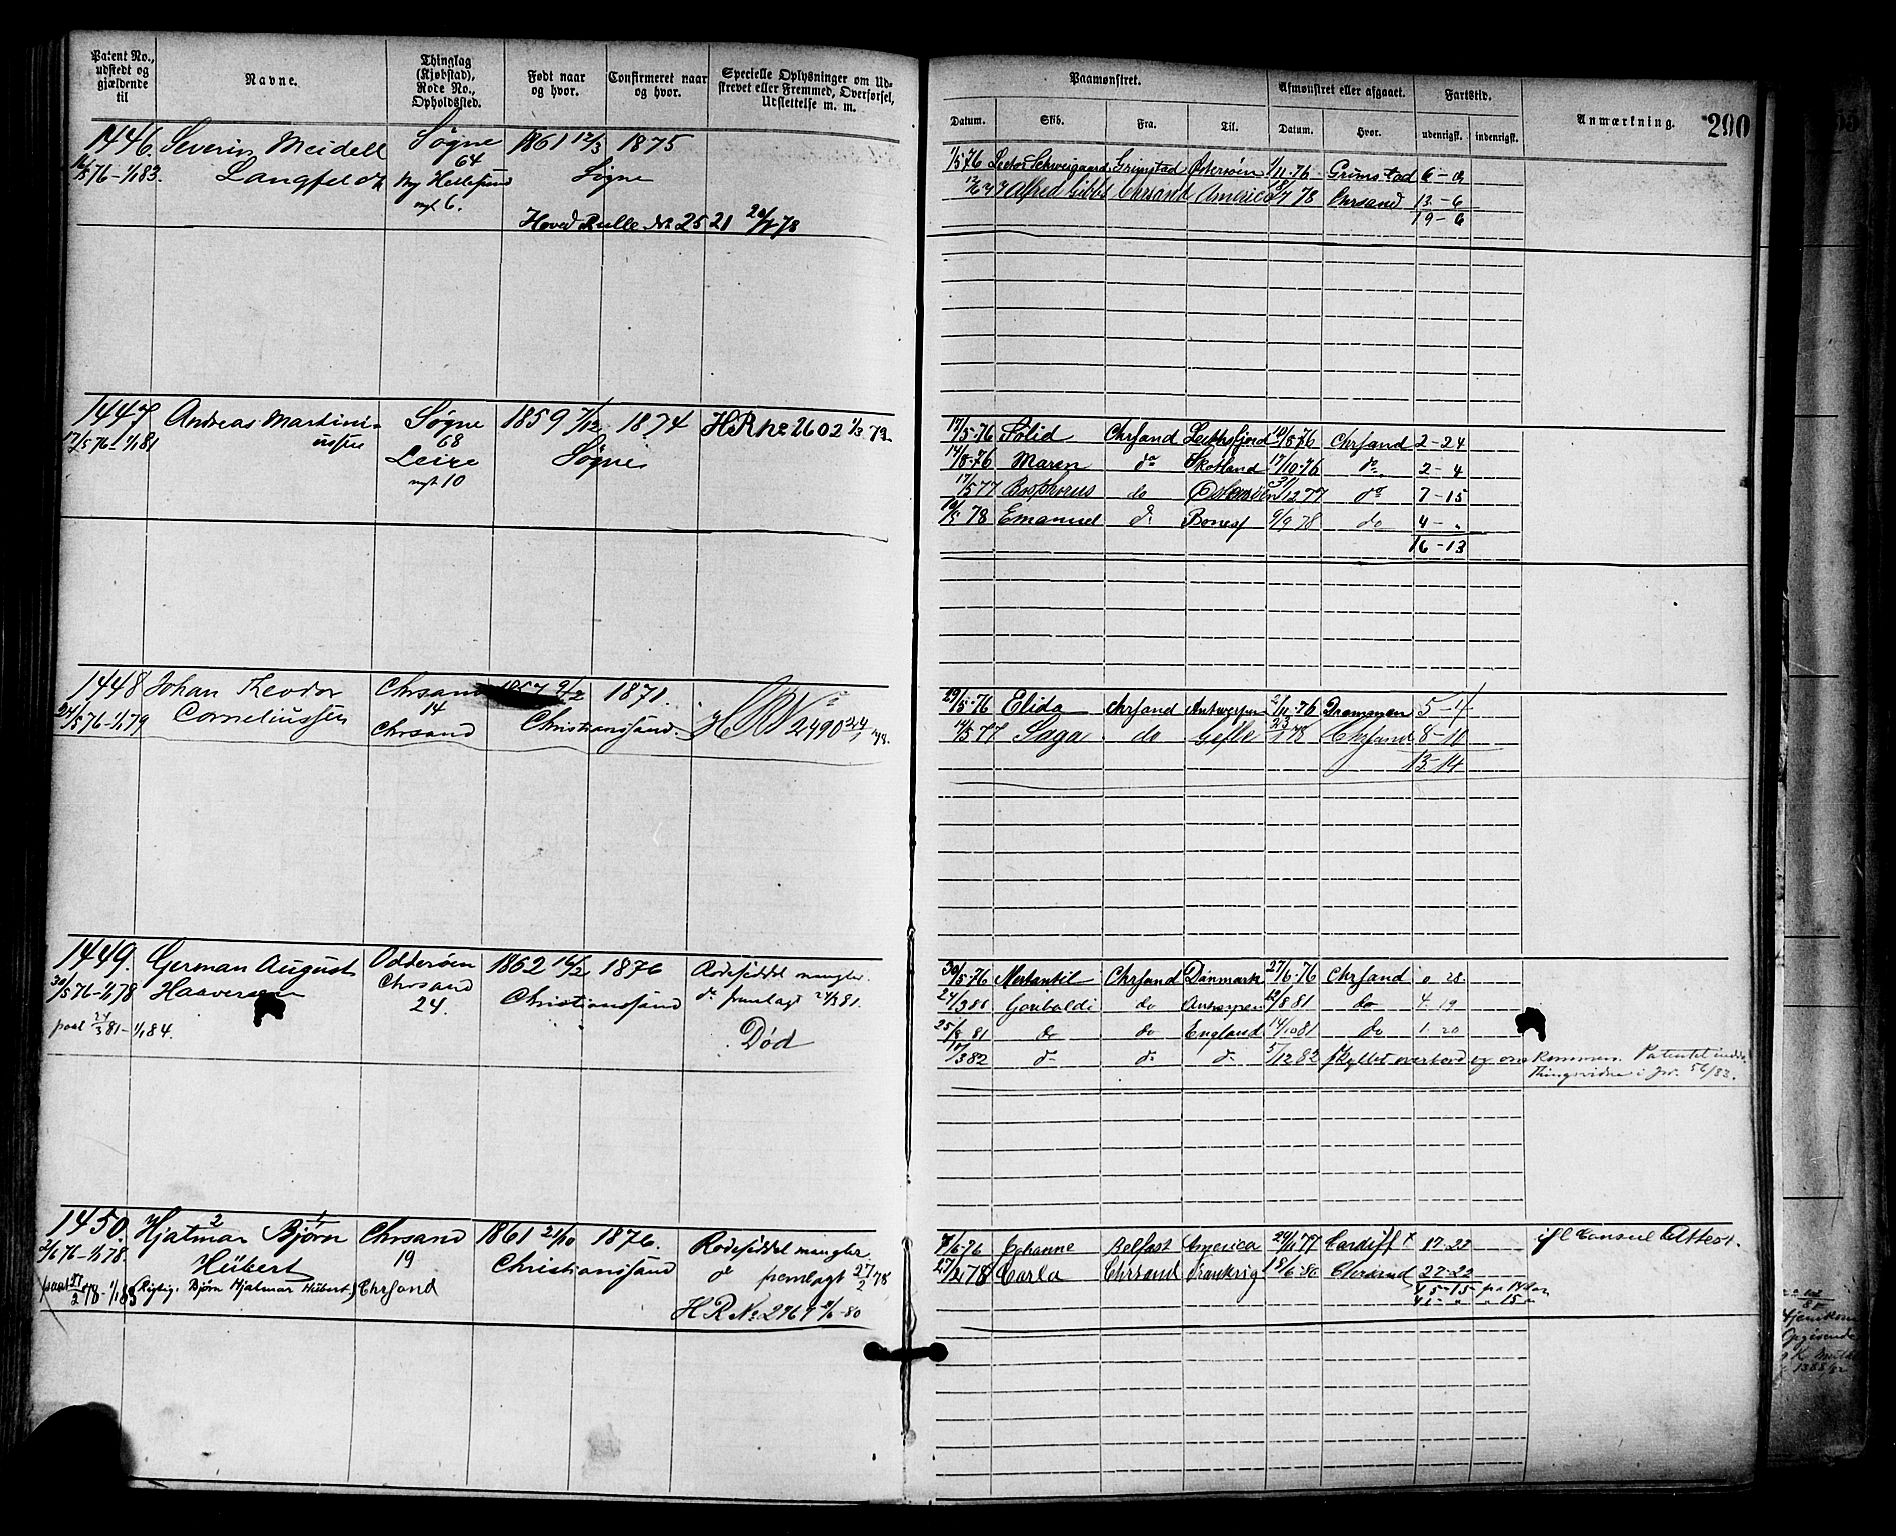 Patent No., udstedt og gjældende til
Navne.
Thinglag (Kjøbstad), Rode No., Opholdssted.
Født naar og hvor.
Confirmeret naar og hvor.
Specielle Oplysninger om Udskrevet eller Fremmed, Overførsel, Udslettelse m. m.
Paamønstret.
Datum.
Skib.
Fra.
Til.
Afmønstret eller afgaaet.
Datum.
Hvor.
Fartstid.
udenrigsk.
indenrigsk.
Anmærkning.
200
1446. Severin Meidell Søgne 1861 12/3 1875
16/5 76 - 1/1 83. Langfeldt 64 Søgne
Ny Hellesund
myt 6.
Hoved Rulle No 2521 78
1/5 76 Lector Schweigaard Grimstad Østersøen 1/11 76 Grimstad 6 - 0
12/6 77 Alfred Gibbs Chrsand America 78 Chrsand 13 - 6
19 - 6
1447 Andreas Martini- Søgne 1859 7/12 1874 H.R No 2602
17/5 76 - 1/1 81 ussen 68 Søgne
Leire
myt 10
17/5 76 Solid Chrsand 76 Chrsand 2 - 24
14/8 76 Maren do Skotland 17/10 76 do 2 - 4
17/5 77 Bosphorus do Østersøen 31/12 77 do 7 - 15
78 Emanuel do Boness 6/9 78 do 4 - "
16 - 13
1448 Johan Theodor Chrsand 1857 9/2 1871.
24/5 76 - 1/1 79 Corneliussen 14 Christianssand. H.R No 2490
Chrsand
29/5 76 Elida Chrsand Antwerpen 2/11 76 Drammen 5 - 4
14/5 77 Saga do Gefle 23/1 78 Chrsand 8 - 10
13 - 14
1449. German August Odderøen 1862 16/2 1876 Rodeseddel mangler.
30/5 76 - 1/1 78 Haaversen Chrsand Christianssand do fremlagt 24/3 81.
paat 24/3 81 - 1/1 84. 24. Død
30/5 76 Merkantil Chrsand Danmark 27/6 76 Chrsand 0 28
24/3 81 Garibaldi do Antwerpen 12/8 81 do 4. 19
25/8 81 do do England 14/10 81 do 1. 20
17/3 82 do do do 5/12 82 skyllet overbord og omkommen. Patentet indd.
Thingsvidne i Jr. 56/83.
1450. Hjalmar 2 Bjørn 1 Chrsand 1861 21/10 1876. Rodeseddel mangler
2/6 76 - 1/1 78. Hübert 19 Christianssand do fremlagt 27/2 78
paat 27/2 78 - 1/1 85 (Rigtig: Bjørn Hjalmar Hübert) Chrsand
H.R No 2969 80
8/6 76 Johanne Belfast America 29/11 77 Cardiff x 17 - 23 ifl Consul Attest.
27/2 78 Carla Chrsand Frankrig 18/6 80 Chrsand 27 - 22
45 - 15